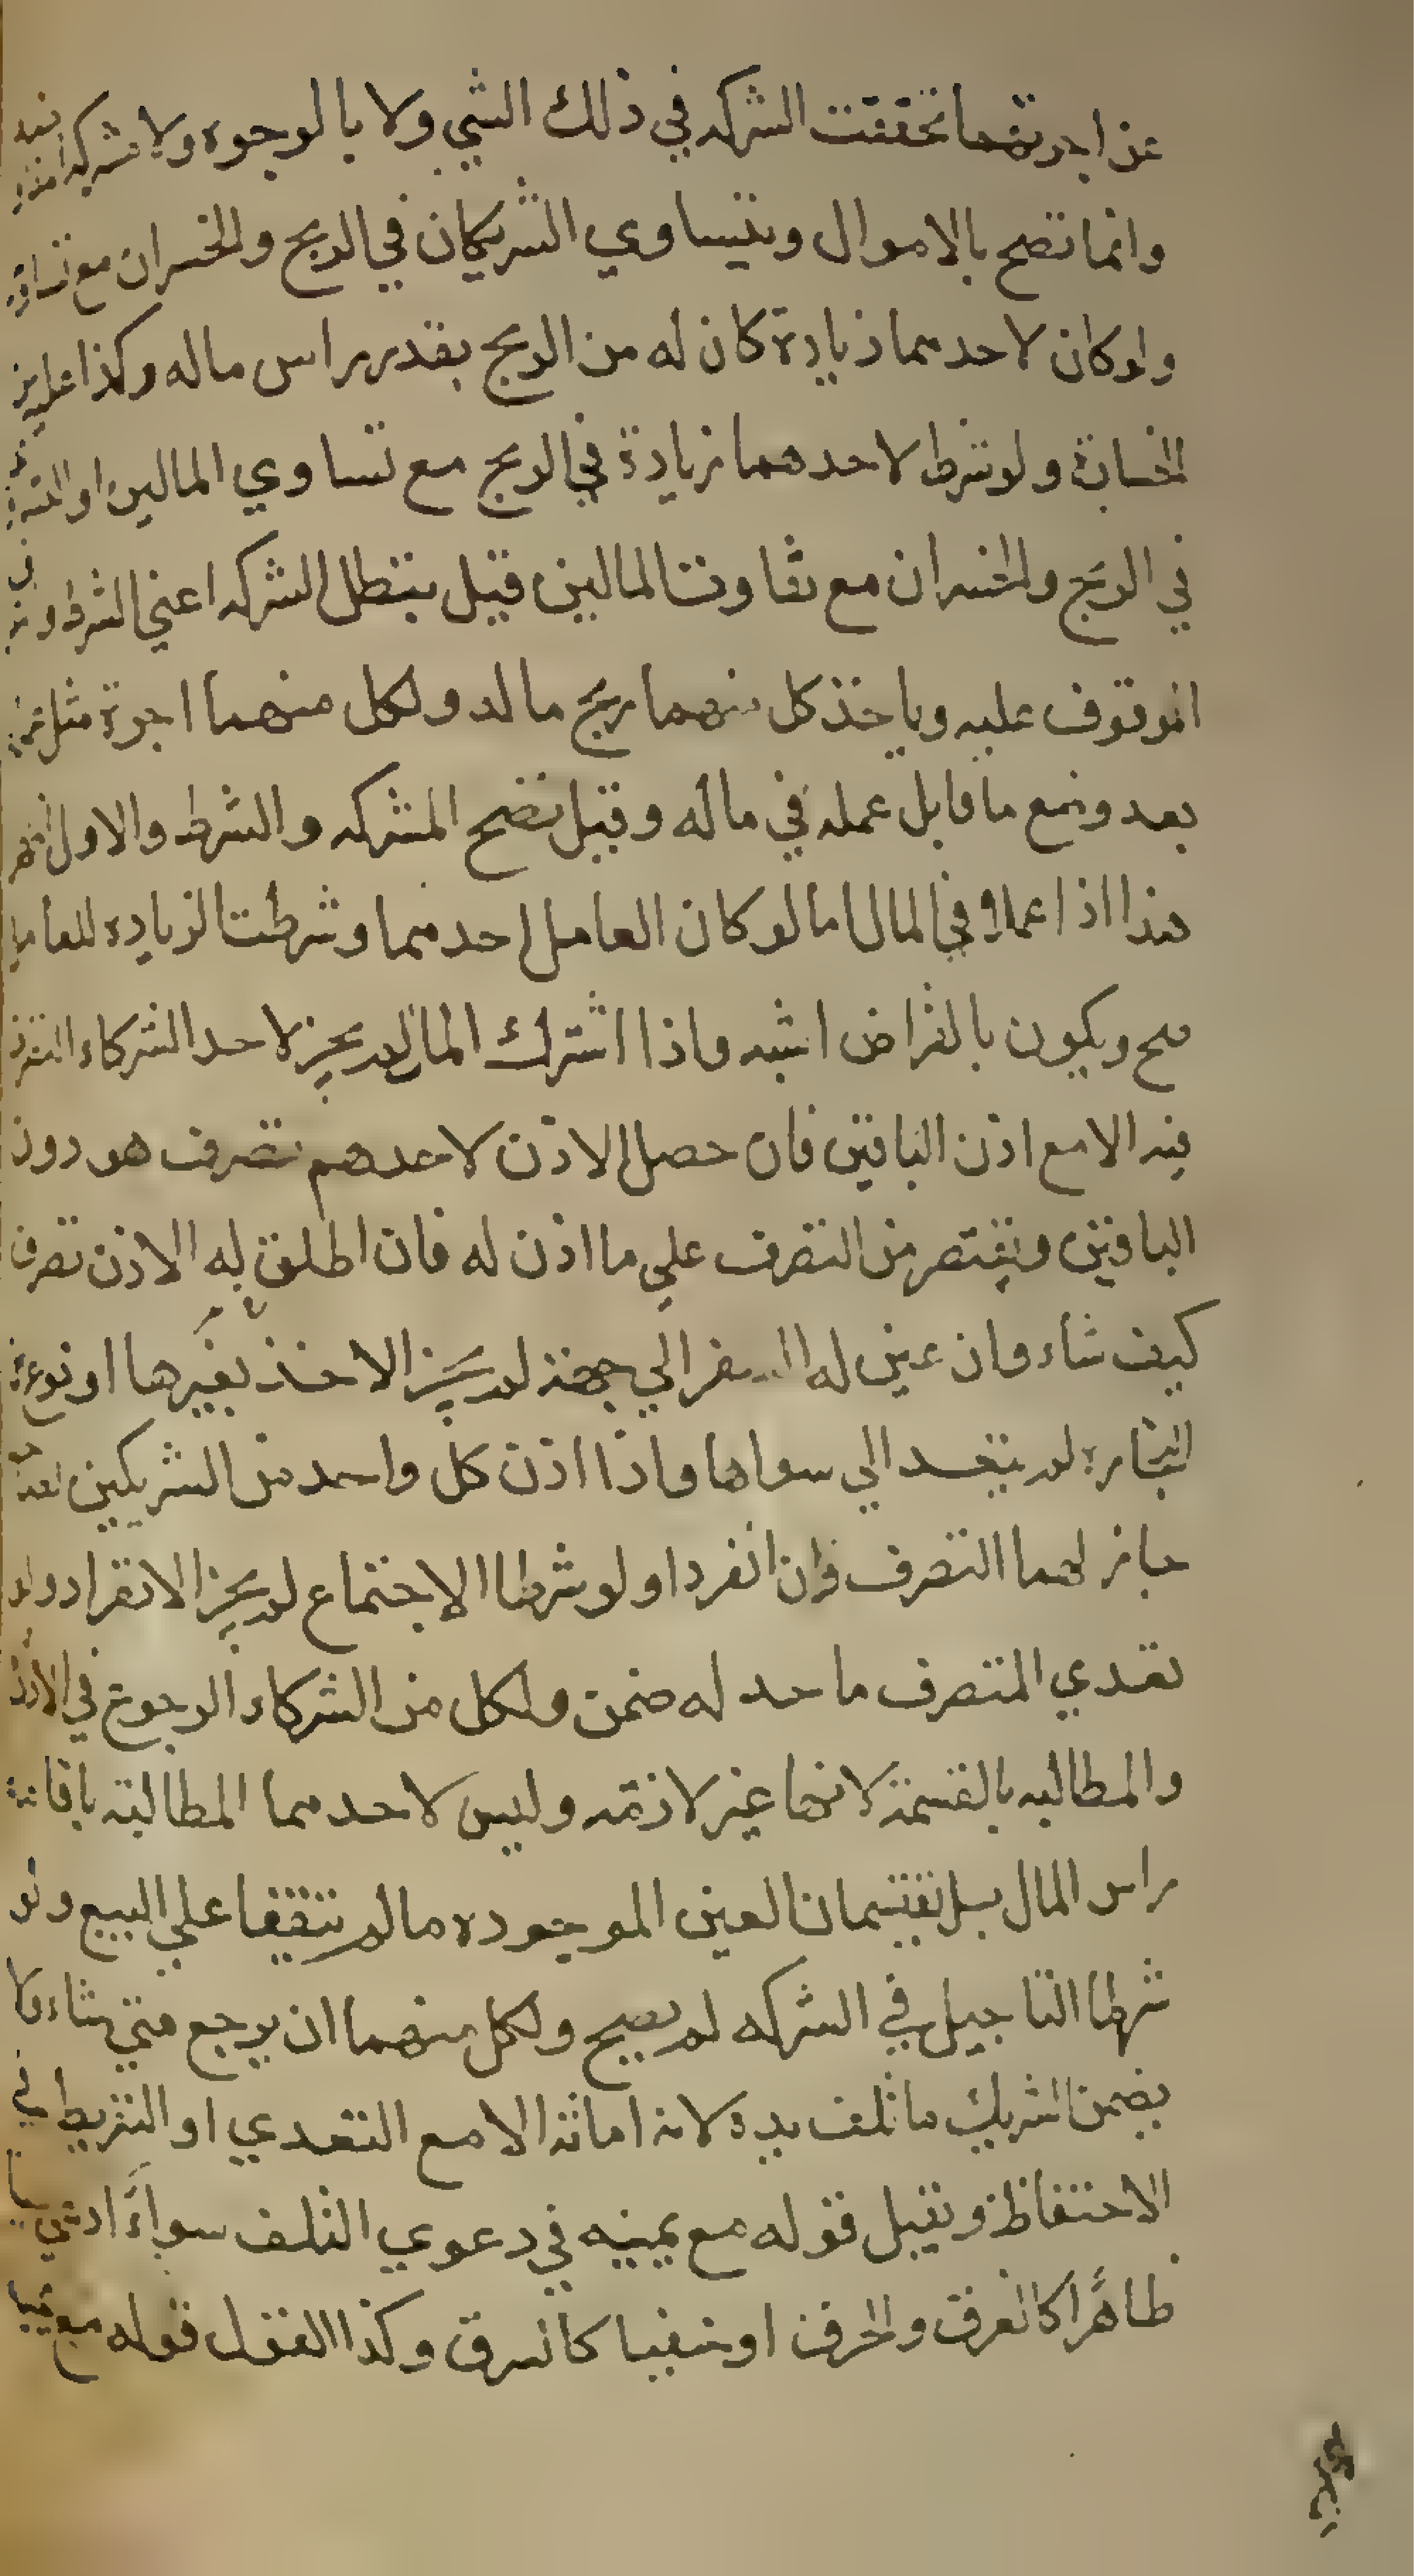 عن اجرتهما تحققت الشركه في ذلك الشي ولا بالوجوه ولا شركه
وانما تصح بالاموال ويتساوي الشريكان في الربح والخسران مع تساوي
ولو كان لاحدهما زيادة كان له من الربح بقدر راس ماله وكذا عليه من
الخسارة ولو شرط لاحدهما زيادة في الربح مع تساوي المالين او
في الربح والخسران مع تفاوت المالين قيل تبطل الشركه اعني الشرط و
الموقوف عليه وياخذ كل منهما ربح ماله ولكل منهما اجرة مثل
بعد وضع ما قابل عمله في ماله وقيل تصح الشركه والشرط والاول اظهر
هذا اذا عملا في المال اما لو كان العامل احدهما وشرطت الزياده للعامل
صح ويكون بالقراض اشبه واذا اشترك المال لم يجز لاحد الشركاء التصرف
فيه الا مع اذن الباقين فان حصل الاذن لاحدهم تصرف هو دون
الباقين ويقتصر من التصرف علي ما اذن له فان اطلق له الاذن تصرف
كيف شاء وان عين له السفر الي جهة لم يجز الاخذ بغيرها او نوع من
التجارة لم يتعد الي سواها واذا اذن كل واحد من الشريكين
جاز لهما التصرف وان انفردا ولو شرطا الاجتماع لم يجز الانفراد ولو
تعدي المتصرف ما حد له ضمن ولكل من الشركاء الرجوع في الاذن
والمطالبه بالقسمة لانها غير لازمه وليس لاحدهما المطالبة باقامة
راس المال بل يقتسمان العين الموجوده ما لم يتفقا علي البيع ولو
شرطا التاجيل في الشركه لم يصح ولكل منهما ان يرجع متي شاء ولا
يضمن الشريك ما تلف بيده لانه امانة الا مع التعدي او التفريط في
الاحتفاظ ويقبل قوله مع يمينه في دعوي التلف سواء ادعي سببا
ظاهرا كالغرق والحرق او خفيا كالسرق وكذا القول قوله مع يمينه